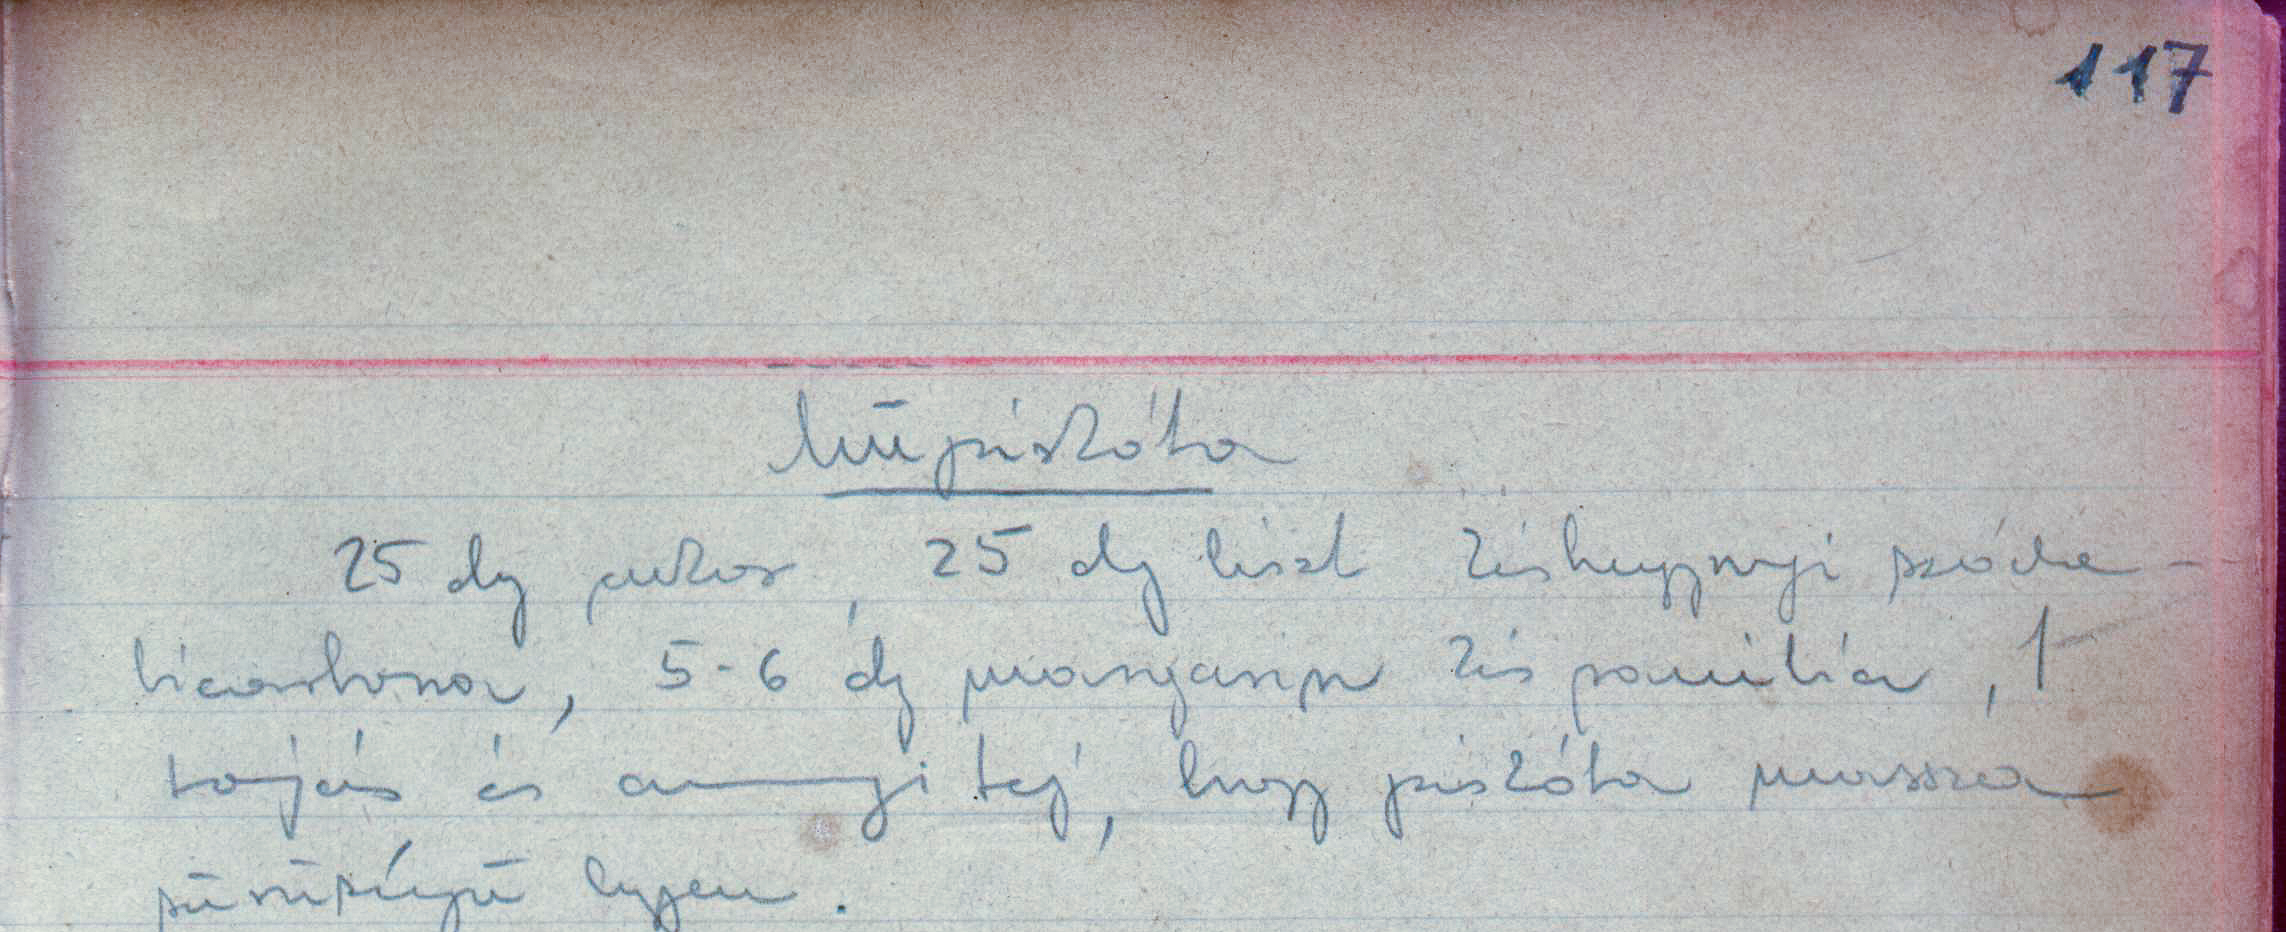 117
Műpiskóta
25 dg cukor, 25 dg liszt késhegynyi szóda-
bicarbona, 5-6 dg margarin kis vanilia, 1
tojás és annyi tej, hogy piskóta massza
sűrűségű legyen.